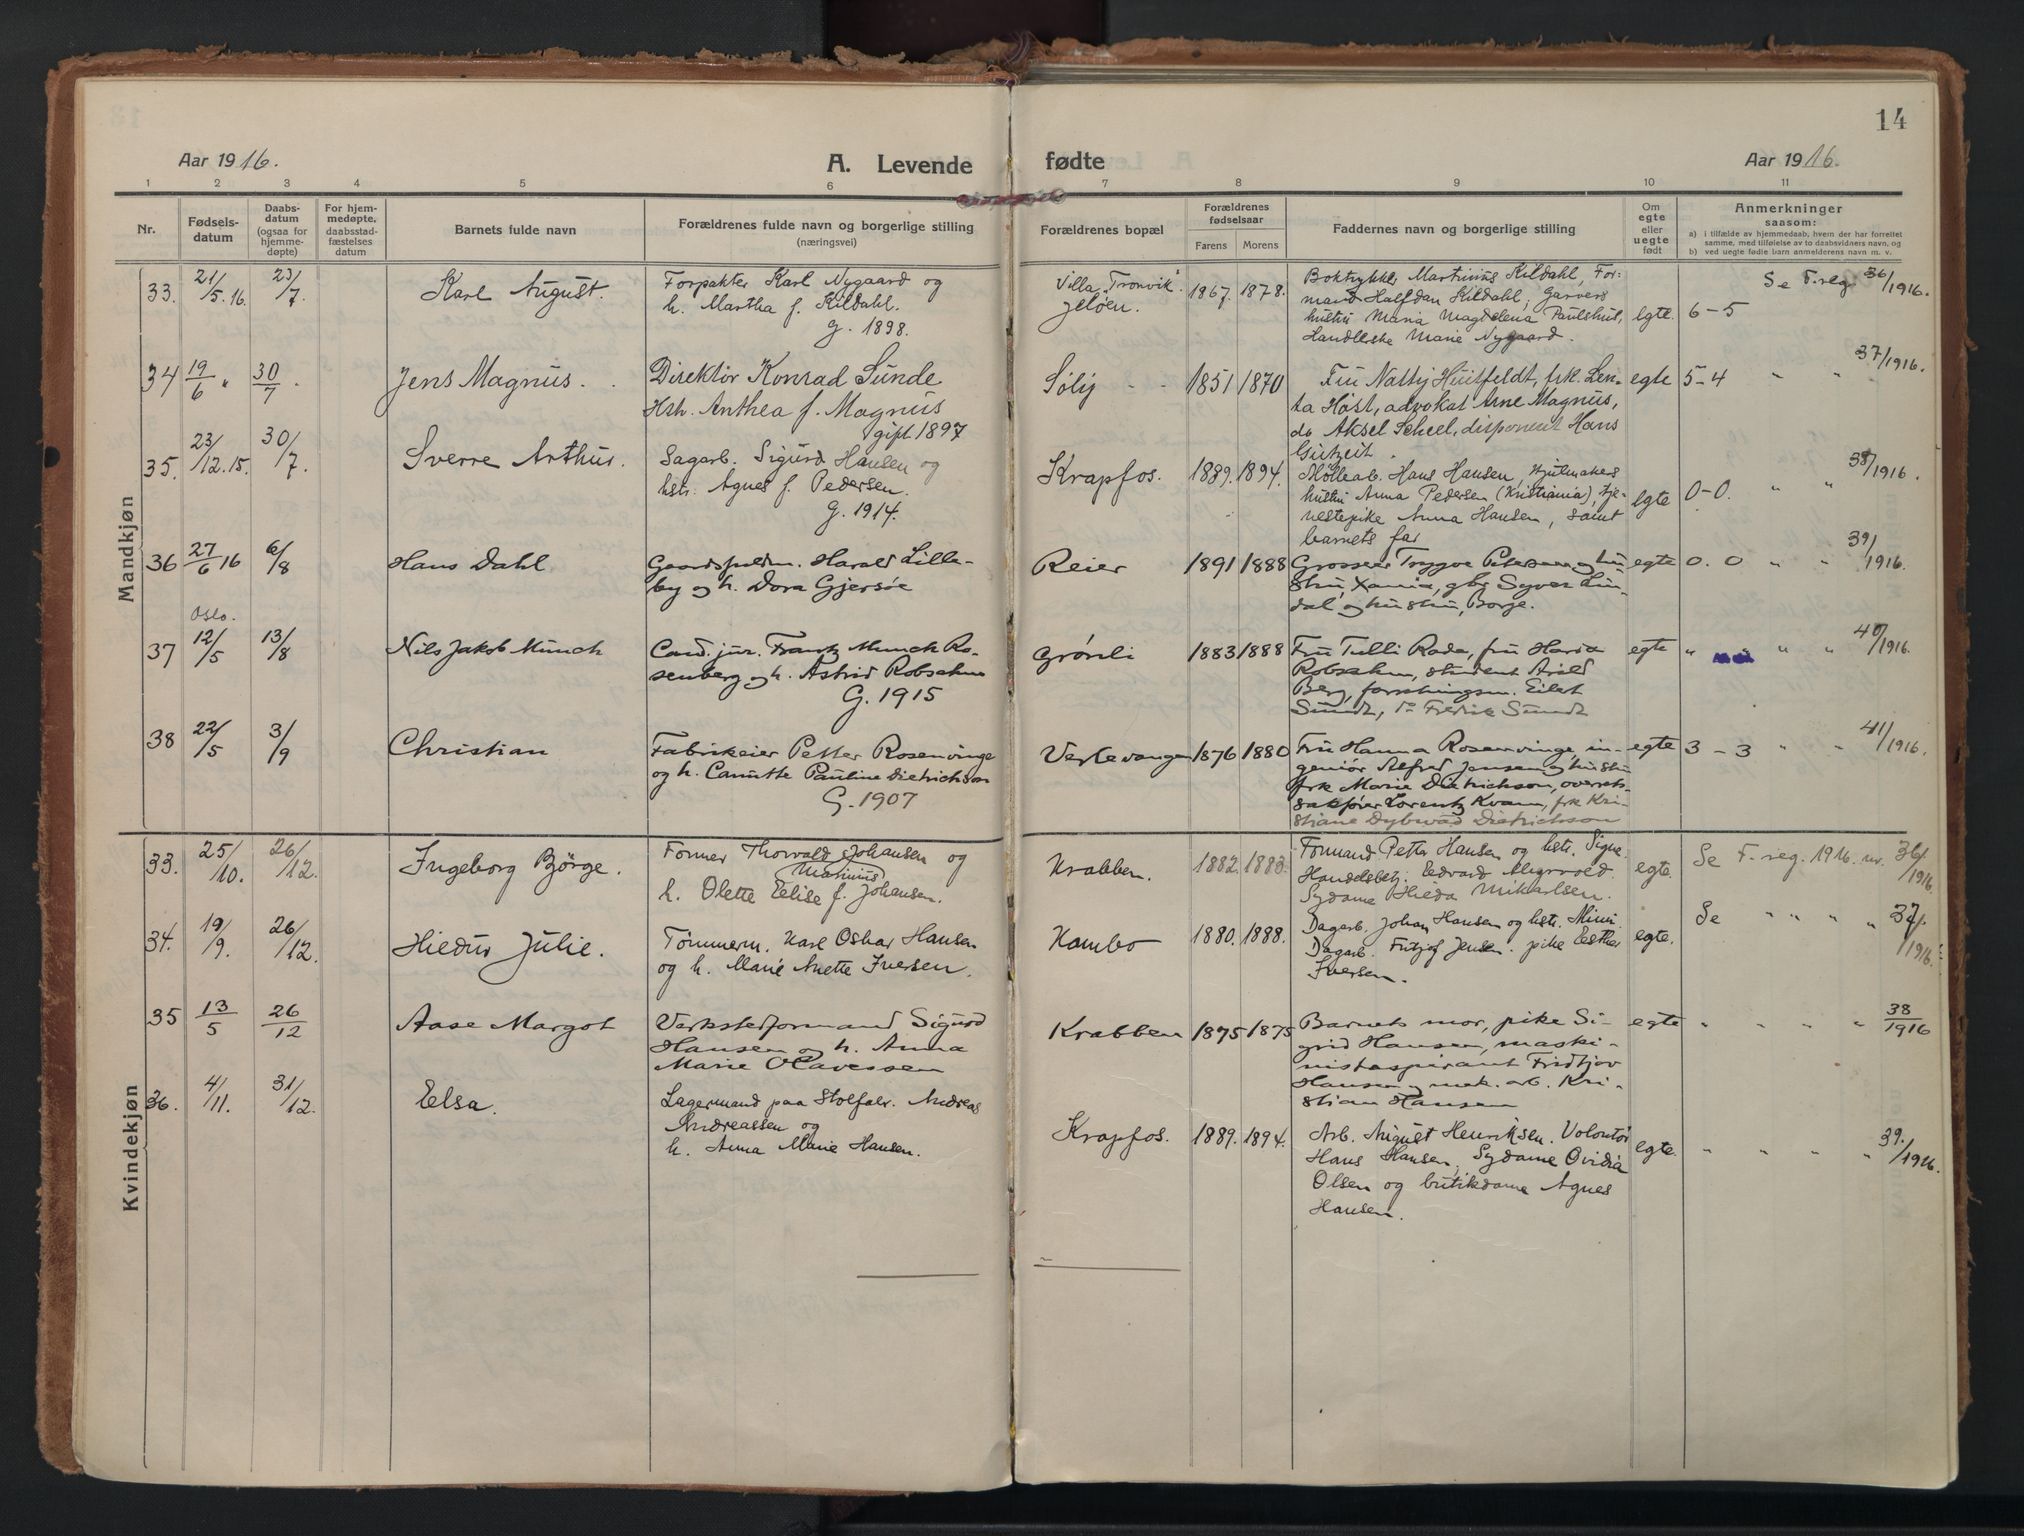 14
Aar 1916.
A. Levende
fødte
Aar 1916.
1 2 3 4 5 6 7 8 9 10 11
Nr.
Fødsels-
datum
Daabs-
datum
(ogsaa for
hjemme-
døpte)
For hjem-
medøpte,
daabsstad-
fæstelses
datum
Barnets fulde navn
Forældrenes fulde navn og borgerlige stilling
(næringsvei)
Forældrenes bopæl
Forældrenes
fødselsaar
Farens Morens
Faddernes navn og borgerlige stilling
Om
egte
eller
uegte
født
Anmerkninger
saasom:
a) i tilfælde av hjemmedaab, hvem der har forrettet
samme, med tilføielse av to daabsvidners navn, og
b) ved uegte fødte barn anmelderens navn m. v.
Mandkjøn
33. 21/5.16. 23/7. Karl August.
Forpakter Karl Nygaard og
h. Martha f. Kildahl.
G. 1898.
Villa Tronvik
Jeløen.
1867. 1878.
Boktrykker Martinius Kildahl, For-
mand Halfdan Kildahl, Garvers
hustru Maria Magdelena Paulshus,
Handlerske Marie Nygaard.
egte. 6-5 Se F.reg. 36/1916.
34 19/6 " 30/7. Jens Magnus.
Direktör Konrad Sunde
Hsh. Anthea f. Magnus
gift 1897
Soly 1851 1870
Fru Natty Huitfeldt, frk. Len-
ta Høst, advokat Arne Magnus,
do Aksel Scheel, disponent Hans
Gutzeit.
egte 5-4 " " 37/1916.
35. 23/12.15. 30/7. Sverre Arthur.
Sagarb. Sigurd Hansen og
hstr. Agnes f. Pedersen.
G. 1914.
Krapfos. 1889. 1894.
Møllearb. Hans Hansen, Hjulmakers
hustru Anna Pedersen (Kristiania), tje-
nestepike Anna Hansen, samt
barnets far
egte 0-0. " " 38/1916.
36 27/6 16 6/8 Hans Dahl
Gaardsfuldm. Harald Lille-
by og h. Dora Gjersöe
Reier 1891 1888
Grosserer Trygve Petersen og hu-
stru, Xania, gbr Syver Lun-
dal og hustru, Borge.
egte 0. 0 " " 39/1916.
Oslo.
37 12/5 13/8 Nils Jakob Munch
Cand. jur. Frantz Munch Ro-
senberg og h. Astrid Robsahm
G. 1915
Grønli 1883 1888
Fru Tulli Rade, fru Maria
Robsahm, student Arild
Berg, forretningsm. Eilert
Sundt, do Fredrik Sundt
egte " " " 40/1916.
38 22/5 3/9 Christian
Fabrikeier Petter Rosenvinge
og h. Canutte Pauline Dietrichson
G. 1907
Verlevangen 1876 1880
Fru Hanna Rosenvinge in-
geniör Alfred Jensen og hustru
frk Marie Dietrichson, overrets-
sakfører Lorentz Kvam, frk Kri-
stiane Dybwad Dietrichson
egte 3 - 3 " " 41/1916.
Kvindekjøn
33. 25/10. 26/12. Ingeborg Börge.
Former Thorvald Johansen og
Marinius
h. Olette Elise f. Johansen.
Krabben. 1882. 1883.
Formand Petter Hansen og hstr. Signe.
Handelsbetj. Edvard Myrvold.
Sydame Hilda Mikarlsen.
egte. Se F. reg. 1916. nr. 36/1916
34. 19/9. 26/12. Hildur Julie.
Tömmerm. Karl Oskar Hansen
og h. Marie Anette Iversen.
Kambo 1880. 1888.
Dagarb. Johan Hansen og hstr. Mimi
Dagarb. Fritjof Jensen. pike Esther
Iversen.
egte. Se " " " " 37/1916.
35 13/5 26/12 Aase Margot
Verkstedformand Sigurd
Hansen og h. Anna
Marie Olavessen
Krabben 1875 1875
Barnets mor, pike Si-
grid Hansen, maski-
nistaspirant Fridtjov
Hansen og mek. arb. Kri-
stian Hansen
egte " " " " 38/1916
36. 4/11. 31/12. Elsa.
Lagermand paa Stolfabr. Andreas
Andreassen og
h. Anna Marie Hansen.
Krapfos. 1889. 1894.
Arb. August Henriksen. Volontör
Hans Hansen, Sydame Ovidia
Olsen og butikdame Agnes
Hansen.
egte. " " " " 39./1916.